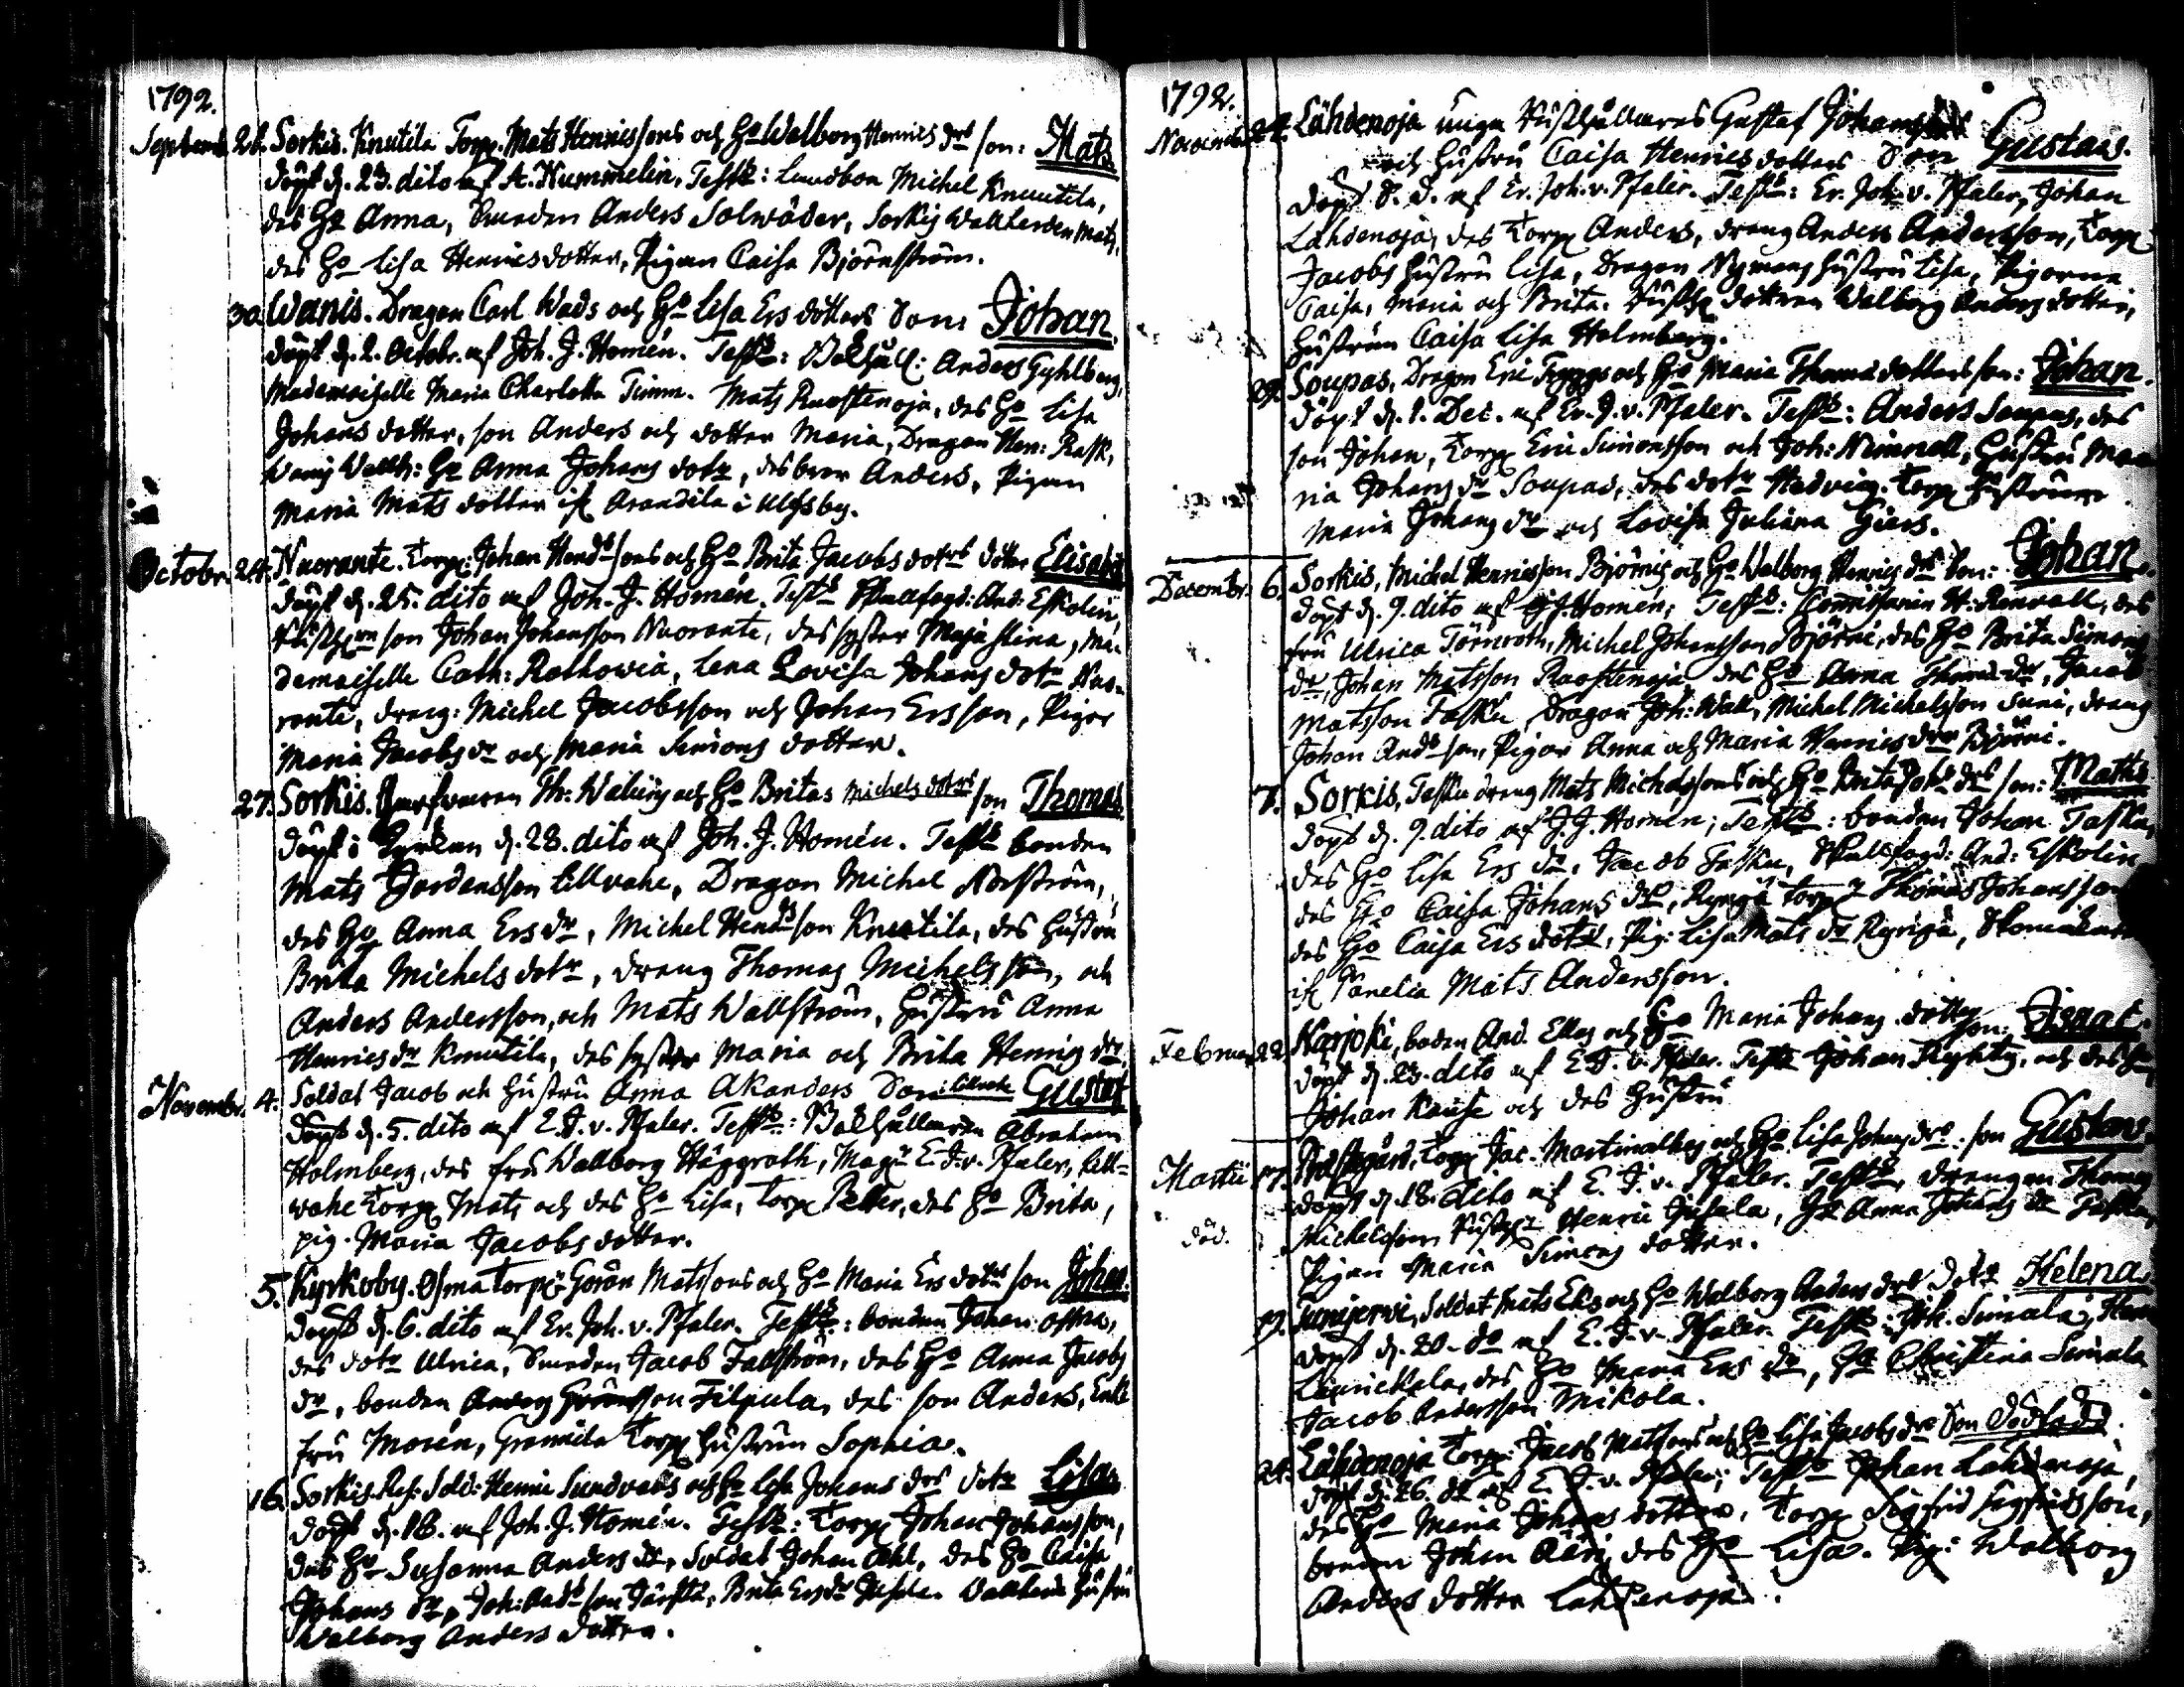 1792.
Septembr. 21. Sorkis. Knutila Torp. Mats Henricssons och Ho Walborg Henrics drs son: Mats.
döpt d. 23. dito af A. Nummelin, Testes: bonden Michel Knuutila,
des Ho Anna, Smeden Anders Solwäder, Sorkis Wallherden Mats,
des Ho Lisa Henricsdotter, Pigan Caisa Björnström.
30. Wanis. Dragon Carl Wads och Ho Lisa Ers dotters Son: Johan
döpt d. 2. Octobr. af Joh. J. Homén. Testes: Bokhåll: Anders Gyhlberg,
Mademoiselle Maria Charlotta Timm. Mats Ruostenoja, des Ho Lisa
Johans dotter, son Anders och dotter Maria, Dragon Hen: Rask,
Wanis Wallh: Ho Anna Johans dotr, des bror Anders, Pigan
Maria Mats dotter ifr. Arandila i Ulfsby.
Octobr. 24. Nuorante. Torp. Johan Hendssons och Ho Brita Jacobs dotrs dotter Elisabet
döpt d. 25. dito af Joh. J. Homén. Testes Skallfogd: And: Eskolin,
son Johan Johansson Nuorante, des syster Maja Stina, Ma-
demoiselle Cath: Rothowia, Lena Lovisa Johans dotr Nuo-
rante, dräng: Michel Jacobsson och Johan Ersson, Pigor
Maria Jacobs dr och Maria Simons dotter.
27. Sorkis. Th: Waling och Ho Britas Michels dotrs son Thomas
döpt i Kyrkan d. 28. dito af Joh. J. Homén. Testes bonden
Mats Jordansson Lillvahe, Dragon Michel Norström,
des Ho Anna Ers dr, Michel Hendsson Knutila, des Hustru
Brita Michels dotr, dräng Thomas Michelsson, och
Anders Andersson, och Mats Wallström, Hustru Anna
Henrics dr Knutila, des syster Maria och Brita Henrics dr.
Novembr. 4. Soldat Jacob och Hustru Anna Akanders Son Lillvahe Gustaf
döpt d. 5. dito af E. J. v. Pfaler. Testes: Bokhållaren Abraham
Holmberg, des fru Wallborg Häggroth, Magr E. J. v. Pfaler, Lill-
wahe Torp. Mats och des Ho Lisa, Torp. Petter, des Ho Brita,
pig. Maria Jacobs dotter.
5. Kyrkoby. Osma Torp. Göran Matssons och Ho Maria Ers dotrs son Johan
döpt d. 6. dito af Er. Joh. v. Pfaler. Testes: bonden Johan Osma,
des dotr Ulrica, Smeden Jacob Fallström, des Ho Anna Jacobs
dr, bonden Göransson Filpula, des son Anders, Enke
fru Morén, Grannila Torp. Hustrun Sophia.
16. Sorkis. Res: Sold: Henric Sundvals och Ho Lisa Johans drs dotr Lisa
döpt d. 18. af Joh. J. Homén. Testes: Torp. Johan Johansson,
des Ho Susanna Anders dr, Soldat Johan Ahl, des Ho Caisa
Johans dr, Joh: Andsson, Brita Ers dr Wallherd. Hustru
Walborg Anders dotter.
1792.
Novembr. 24. Lähdenoja unga Rusthållares Gustaf Johanssons
och Hustru Caisa Henrics dotters Son Gustavs.
döpt d. d. af Er. Joh. v. Pfaler. Testes: Er. Joh. v. Pfaler, Johan
Lähdenoja, des Torp. Anders, dräng Anders Andersson, Torp.
Jacobs Hustru Lisa, Dragon Nymans Hustru Lisa, Pigorna
Caisa, Maria och Brita. Rusth. dottren Walborg Anders dotter,
Hustrun Caisa Lisa Holmberg.
29. Soupas, Dragon Eric Tryggs och Ho Maria Thomas dotters son: Johan.
döpt d. 1. Dec. af Er. J. v. Pfaler. Testes: Anders Soupas, des
son Johan, Torp. Eric Simonsson och Joh: Nimnell, Hustru Ma-
ria Johans dr Soupas, des dotr Hedvig. Torp. Hustrun
Maria Johans dr och Lovisa Juliana Giers.
Decembr. 6. Sorkis, Michel Henricsson Björnis och Ho Walborg Henrics drs Son: Johan.
döpt d. 9. dito af J. J. Homén; Testes: Commissarien H: Renvall, des
fru Ulrica Törnroth, Michel Johansson Björni, des Ho Brita Simons
dr, Johan Matsson Ruostenoja des Ho Anna Thomas dr, Jacob
Matsson Tasku, Dragon Joh: Wall, Michel Michelsson Suni, dräng
Johan Andsson, Pigor Anna och Maria Henrics drar Björni.
7. Sorkis, Tasku dräng Mats Michelssons och Ho Brita Johs drs son: Maths
döpt d. 9. dito af J. J. Homén; Testes: bonden Johan Tasku,
des Ho Lisa Ers dr, Jacob Tasku, Skallfogd: And: Eskolin
des Ho Caisa Johans dr, Torp. Thomas Johansson
des Ho Caisa Ers dotr, Pig: Lisa Mats dr
ifr. Panelia Mats Andersson.
Februar. 22. Karjoki, boden And. Ellas och Ho Maria Johans dotters son: Ignat.
döpt d. 23. dito af E. J. v. Pfaler. Testes Johan Ryhty, och des Ho,
Johan Kause och des Hustru
Martii 17. Prästegård, Torp. Jac. Martinalhos och Ho Lisa Johans drs son Gustavs.
död.
döpt d. 18. dito af E. J. v. Pfaler. Testes, drängen Thomas
Michelsson, Rusth. Henric Juhala, Ho Anna Johans dr
Pigan Maria Simons dotter.
19. Tunijervi, Soldat Mats Eks och Ho Walborg Anders drs dotr Helena
döpt d. 20. do af E. J. v. Pfaler. Testes: Joh. Simula,
des Ho Maria Ers dr, Christina Simula
Jacob Andersson Mikola.
24. Lähdenoja Torp. Jacob Matssons och Ho Lisa Jacobs drs Son dödfödd.
döpt d. 26. do af E. J. v. Pfaler; Testes Johan Lähdenoja,
des Ho Maria Johans dotter, Torp. Sigfrid Sigfridsson,
bonden Johan des Ho Lisa. Pig: Walborg
Anders dotter Lähdenoja.